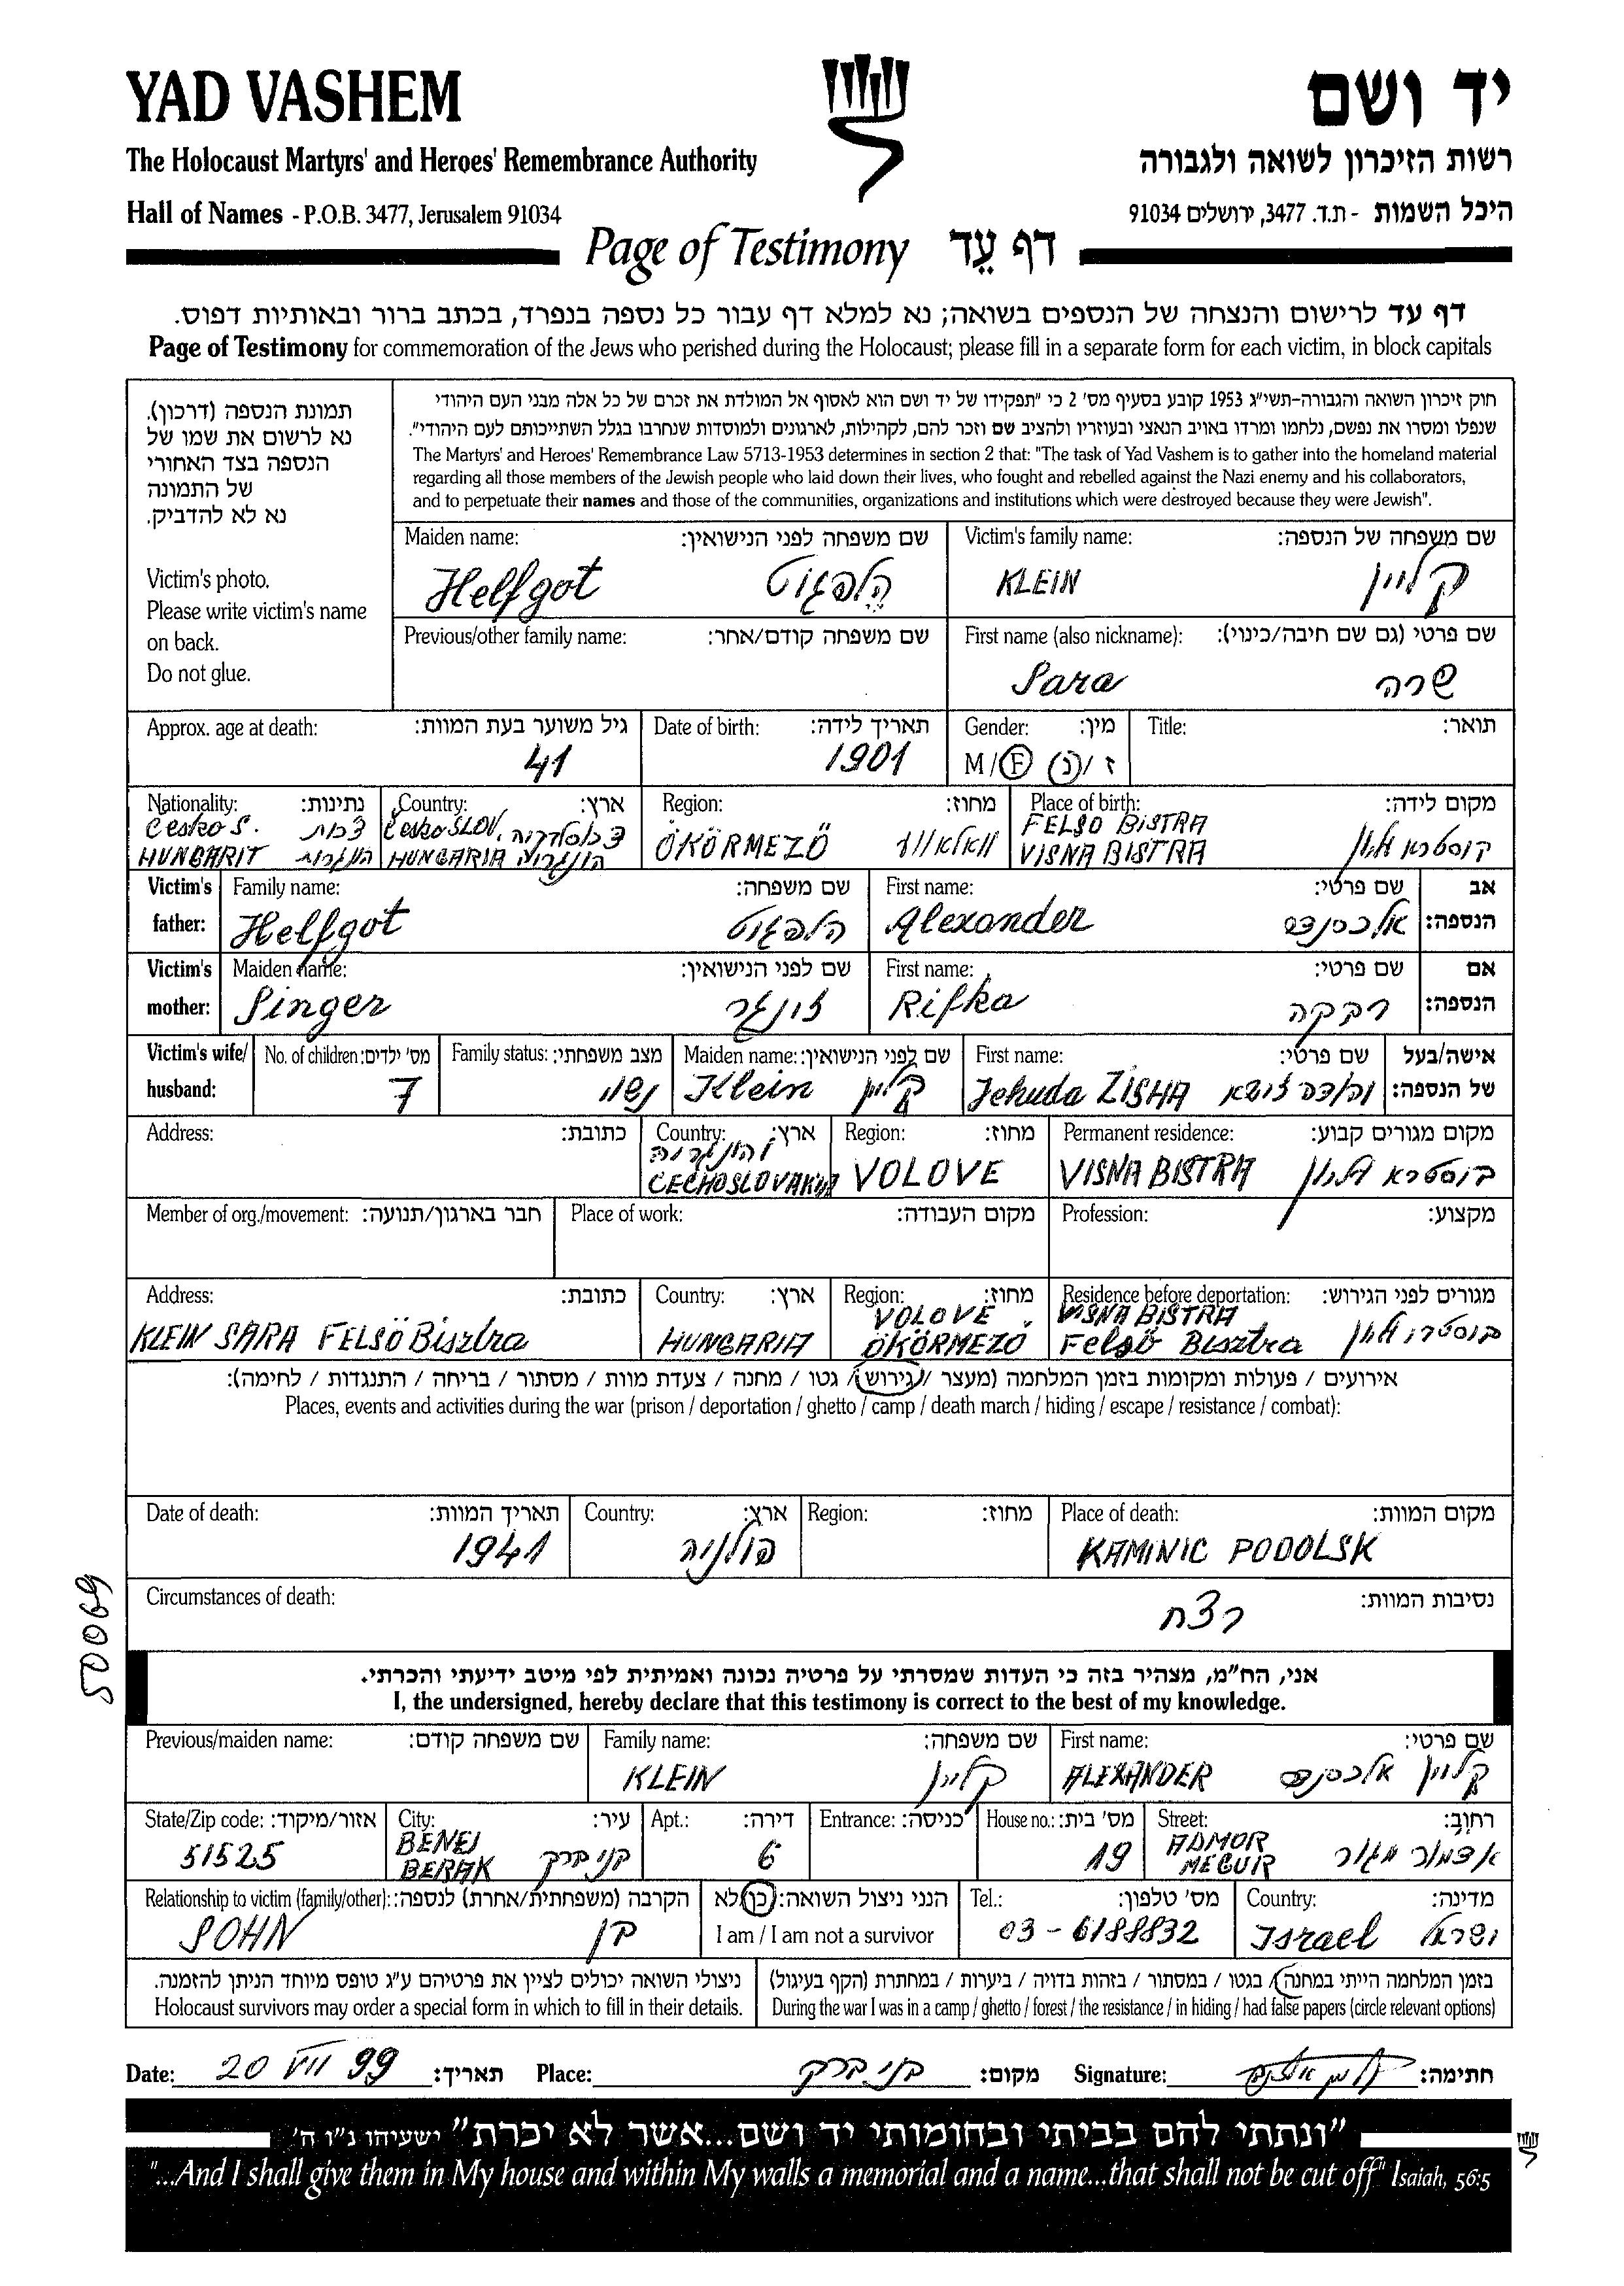 YAD VASHEM
יד ושם
The Holocaust Martyrs' and Heroes' Remembrance Authority
רשות הזיכרון לשואה ולגבורה
Hall of Names - P.O.B. 3477, Jerusalem 91034
היכל השמות - ת.ד. 3477, ירושלים 91034
Page of Testimony דף עֵד
דף עד לרישום והנצחה של הנספים בשואה; נא למלא דף עבור כל נספה בנפרד, בכתב ברור ובאותיות דפוס.
Page of Testimony for commemoration of the Jews who perished during the Holocaust; please fill in a separate form for each victim, in block capitals
תמונת הנספה (דרכון).
נא לרשום את שמו של
הנספה בצד האחורי
של התמונה
נא לא להדביק.
Victim's photo.
Please write victim's name
on back.
Do not glue.
חוק זיכרון השואה והגבורה-תשי"ג 1953 קובע בסעיף מס' 2 כי "תפקידו של יד ושם הוא לאסוף אל המולדת את זכרם של כל אלה מבני העם היהודי
שנפלו ומסרו את נפשם, נלחמו ומרדו באויב הנאצי ובעוזריו ולהציב שם וזכר להם, לקהילות, לארגונים ולמוסדות שנחרבו בגלל השתייכותם לעם היהודי".
The Martyrs' and Heroes' Remembrance Law 5713-1953 determines in section 2 that: "The task of Yad Vashem is to gather into the homeland material
regarding all those members of the Jewish people who laid down their lives, who fought and rebelled against the Nazi enemy and his collaborators,
and to perpetuate their names and those of the communities, organizations and institutions which were destroyed because they were Jewish".
Maiden name: שם משפחה לפני הנישואין:
Helfgot הלפגוט
Victim's family name: שם משפחה של הנספה:
KLEIN קליין
Previous/other family name: שם משפחה קודם/אחר:
First name (also nickname): שם פרטי (גם שם חיבה/כינוי):
Sara שרה
Approx. age at death: גיל משוער בעת המוות:
41
Date of birth: תאריך לידה:
1901
Gender: מין:
M / F ז / נ
Title: תואר:
Nationality: נתינות:
Cesko S.
HUNGARIT
Country: ארץ:
Česko SLOV.
HUNGARIA הונגריה
Region: מחוז:
ÖKÖRMEZŐ
Place of birth: מקום לידה:
FELSO BISTRA
VISNA BISTRA
Victim's father: אב הנספה:
Family name: שם משפחה:
Helfgot הלפגוט
First name: שם פרטי:
Alexander אלכסנדר
Victim's mother: אם הנספה:
Maiden name: שם לפני הנישואין:
Singer זינגר
First name: שם פרטי:
Rifka רבקה
Victim's wife/ husband: אישה/בעל של הנספה:
No. of children: מס' ילדים:
7
Family status: מצב משפחתי:
נשוי
Maiden name: שם לפני הנישואין:
Klein קליין
First name: שם פרטי:
Jehuda ZISHA יהודה זישא
Address: כתובת:
Country: ארץ:
הונגריה
CECHOSLOVAKIA
Region: מחוז:
VOLOVE
Permanent residence: מקום מגורים קבוע:
VISNA BISTRA
Member of org./movement: חבר בארגון/תנועה:
Place of work: מקום העבודה:
Profession: מקצוע:
Address: כתובת:
KLEIN SARA FELSÖ Bisztra
Country: ארץ:
HUNGARIA
Region: מחוז:
VOLOVE
ÖKÖRMEZŐ
Residence before deportation: מגורים לפני הגירוש:
VISNA BISTRA
Felsö Bisztra
אירועים / פעולות ומקומות בזמן המלחמה (מעצר / גירוש / גטו / מחנה / צעדת מוות / מסתור / בריחה / התנגדות / לחימה):
Places, events and activities during the war (prison / deportation / ghetto / camp / death march / hiding / escape / resistance / combat):
Date of death: תאריך המוות:
1941
Country: ארץ:
פולניה
Region: מחוז:
Place of death: מקום המוות:
KAMINIC PODOLSK
Circumstances of death: נסיבות המוות:
רצח
50069
אני, הח"מ, מצהיר בזה כי העדות שמסרתי על פרטיה נכונה ואמיתית לפי מיטב ידיעתי והכרתי.
I, the undersigned, hereby declare that this testimony is correct to the best of my knowledge.
Previous/maiden name: שם משפחה קודם:
Family name: שם משפחה:
KLEIN קליין
First name: שם פרטי:
ALEXANDER קליין אלכסנדר
State/Zip code: אזור/מיקוד:
51525
City: עיר:
BENEJ
BERAK בני ברק
Apt.: דירה:
6
Entrance: כניסה:
House no.: מס' בית:
19
Street: רחוב:
ADMOR
MEGUR אדמור מגור
Relationship to victim (family/other): הקרבה (משפחתית/אחרת) לנספה:
SOHN בן
הנני ניצול השואה: כן/לא
I am / I am not a survivor
Tel.: מס' טלפון:
03-6188832
Country: מדינה:
Israel ישראל
ניצולי השואה יכולים לציין את פרטיהם ע"ג טופס מיוחד הניתן להזמנה.
Holocaust survivors may order a special form in which to fill in their details.
בזמן המלחמה הייתי במחנה / בגטו / במסתור / בזהות בדויה / ביערות / במחתרת (הקף בעיגול)
During the war I was in a camp / ghetto / forest / the resistance / in hiding / had false papers (circle relevant options)
Date: 20 VII 99 תאריך:
Place: בני ברק מקום:
Signature: חתימה:
"ונתתי להם בביתי ובחומותי יד ושם...אשר לא יכרת" ישעיהו נ"ו ה'
"...And I shall give them in My house and within My walls a memorial and a name...that shall not be cut off" Isaiah, 56:5